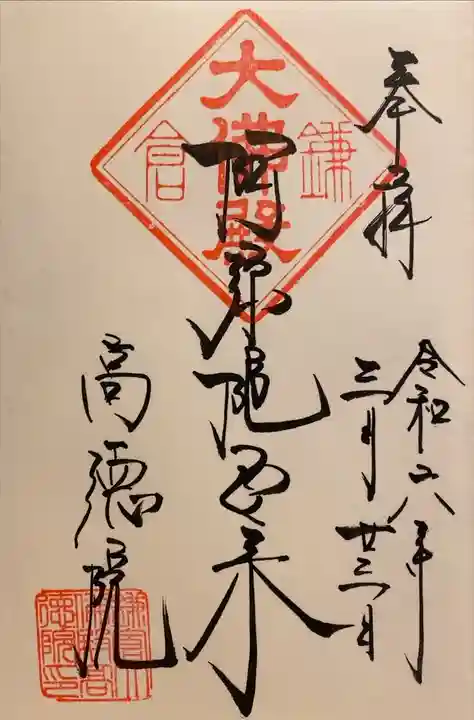 奉拝
令和六年
三月廿三日
鎌倉
大佛殿
阿弥陀如来
高德院